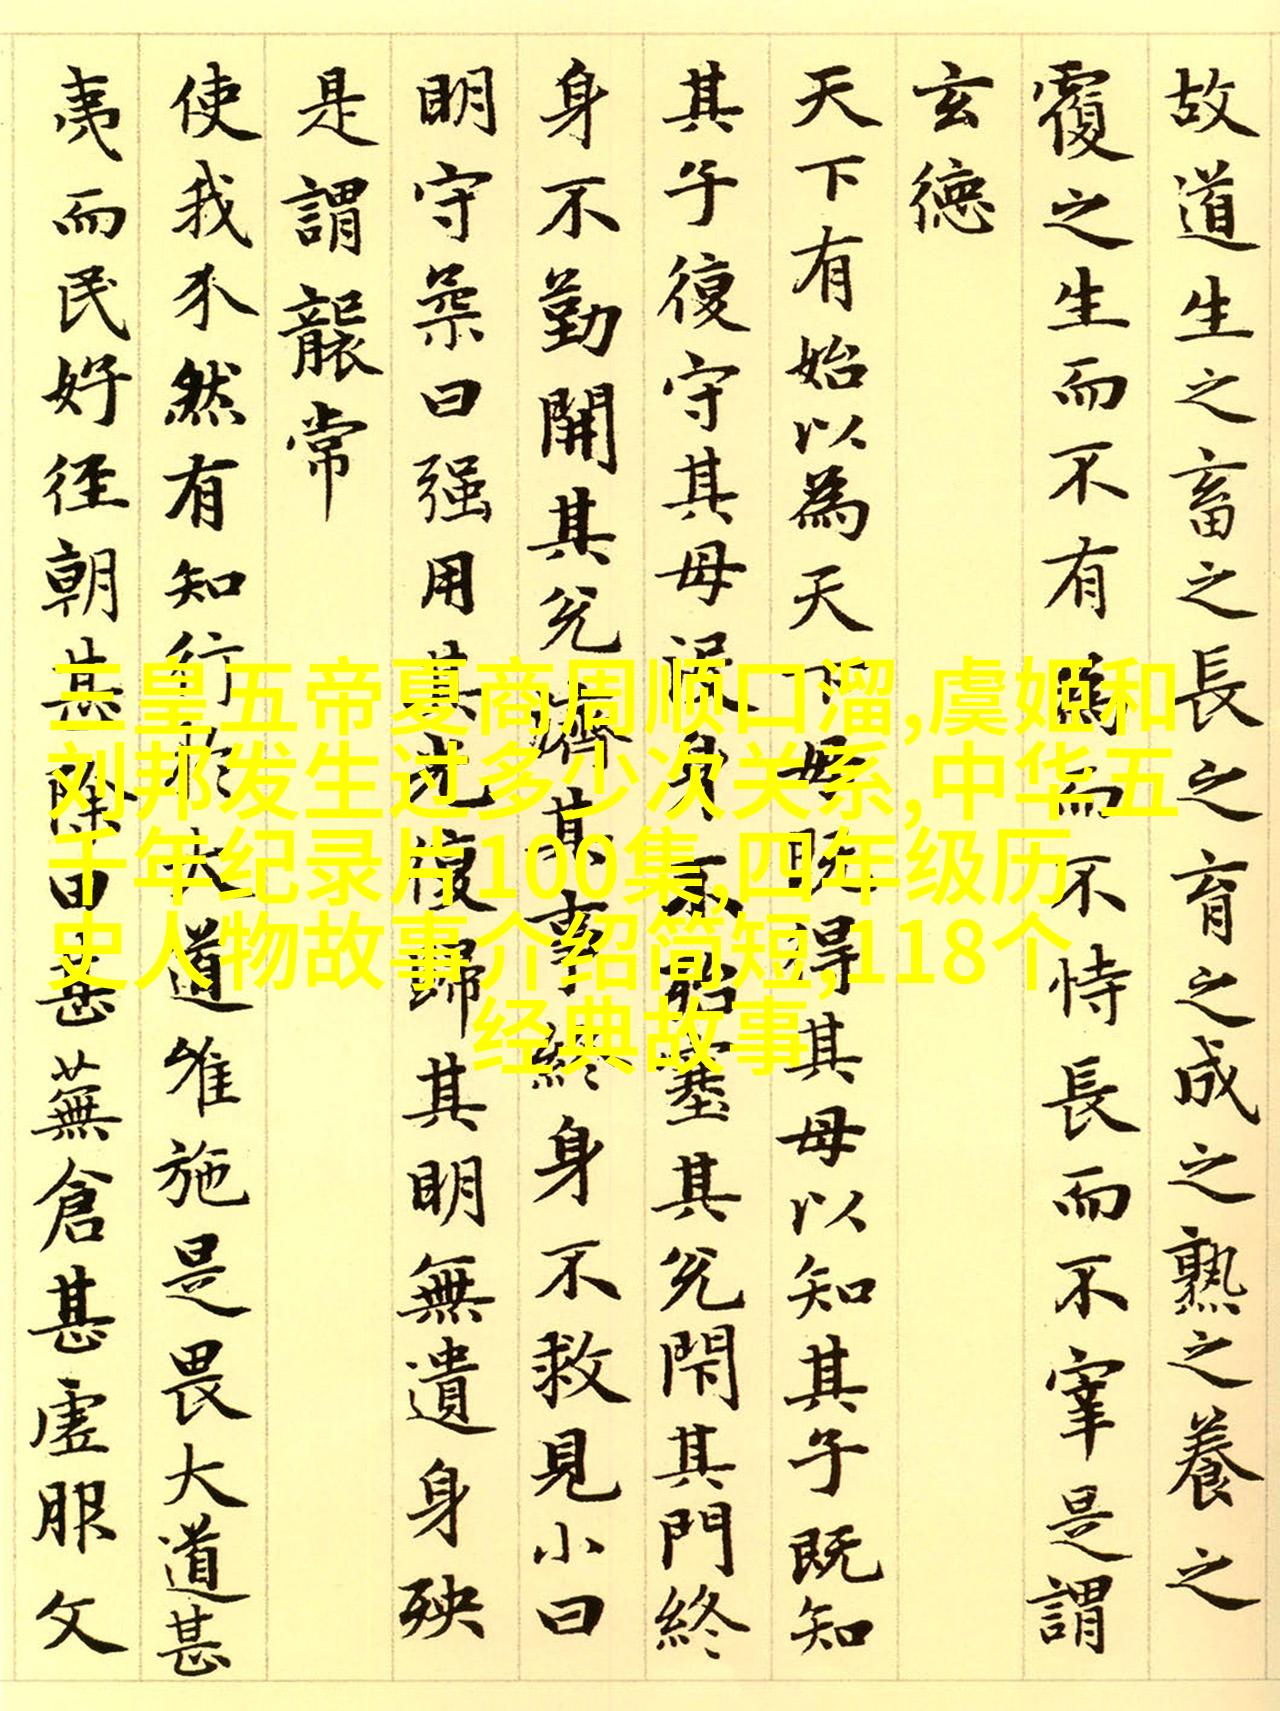 故道生之畜之長之育之成之熟之養之
覆之生而不有為而不恃長而不宰是謂
玄德
天下有始以為天下母既得其母以知其子既知
其子復守其母没身不殆塞其兊閇其門終
身不勤開其兊濟其事終身不救見小曰
明守柔曰强用其光復歸其明無遺身殃
是謂襲常
使我介然有知行於大道唯施是畏大道甚
夷而民好徑朝甚除田甚蕪倉甚虛服文
三皇五帝夏商周顺口溜,虞姬和
刘邦发生过多少次关系,中华五
千年纪录片100集,四年级历
史人物故事介绍简短,118个
经典故事